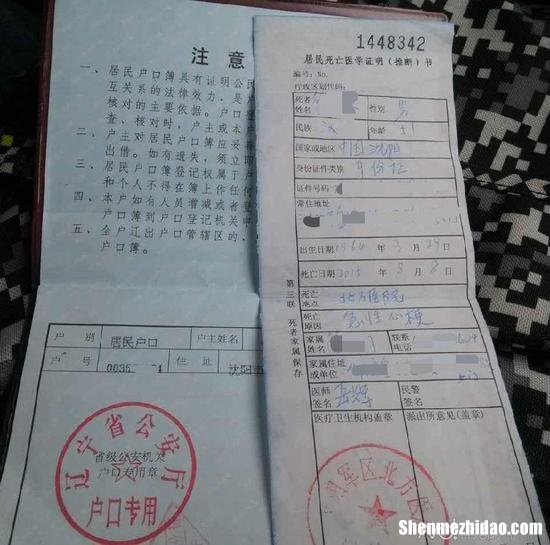 注意
一、居民户口簿具有证明公民
互关系的法律效力，是户
核对的主要依据。户口登
查、核对时，户主或本户
二、户主对居民户口簿应妥善
出借。如有遗失，须立即
三、居民户口簿登记权属于户
和个人不得在簿上作任何
四、本户如有人员增减或者登
户口簿到户口登记机关申
五、全户迁出户口管辖区的，
户口簿。
户别 居民户口 户主姓名
户号 0035 1 住址 沈阳市
辽宁省公安厅
省级公安机关
户口专用章
户口专用
1448342
居民死亡医学证明（推断）书
编号：No.
行政区划代码：
死者姓名 性别 男
民族 汉 年龄 51
国家或地区 中国沈阳
身份证件类别 身份证
证件号码
常住地址
出生日期 1964 年 3 月 29 日
死亡日期 2015 年 8 月 8 日
死亡地点 北方医院
死亡原因 急性心梗
第三联 死者家属保存
家属姓名 联系电话
家属住址或单位
医师签名 民警签名
医疗卫生机构盖章 派出所意见（盖章）
军区北方医
Shenmezhidao.com